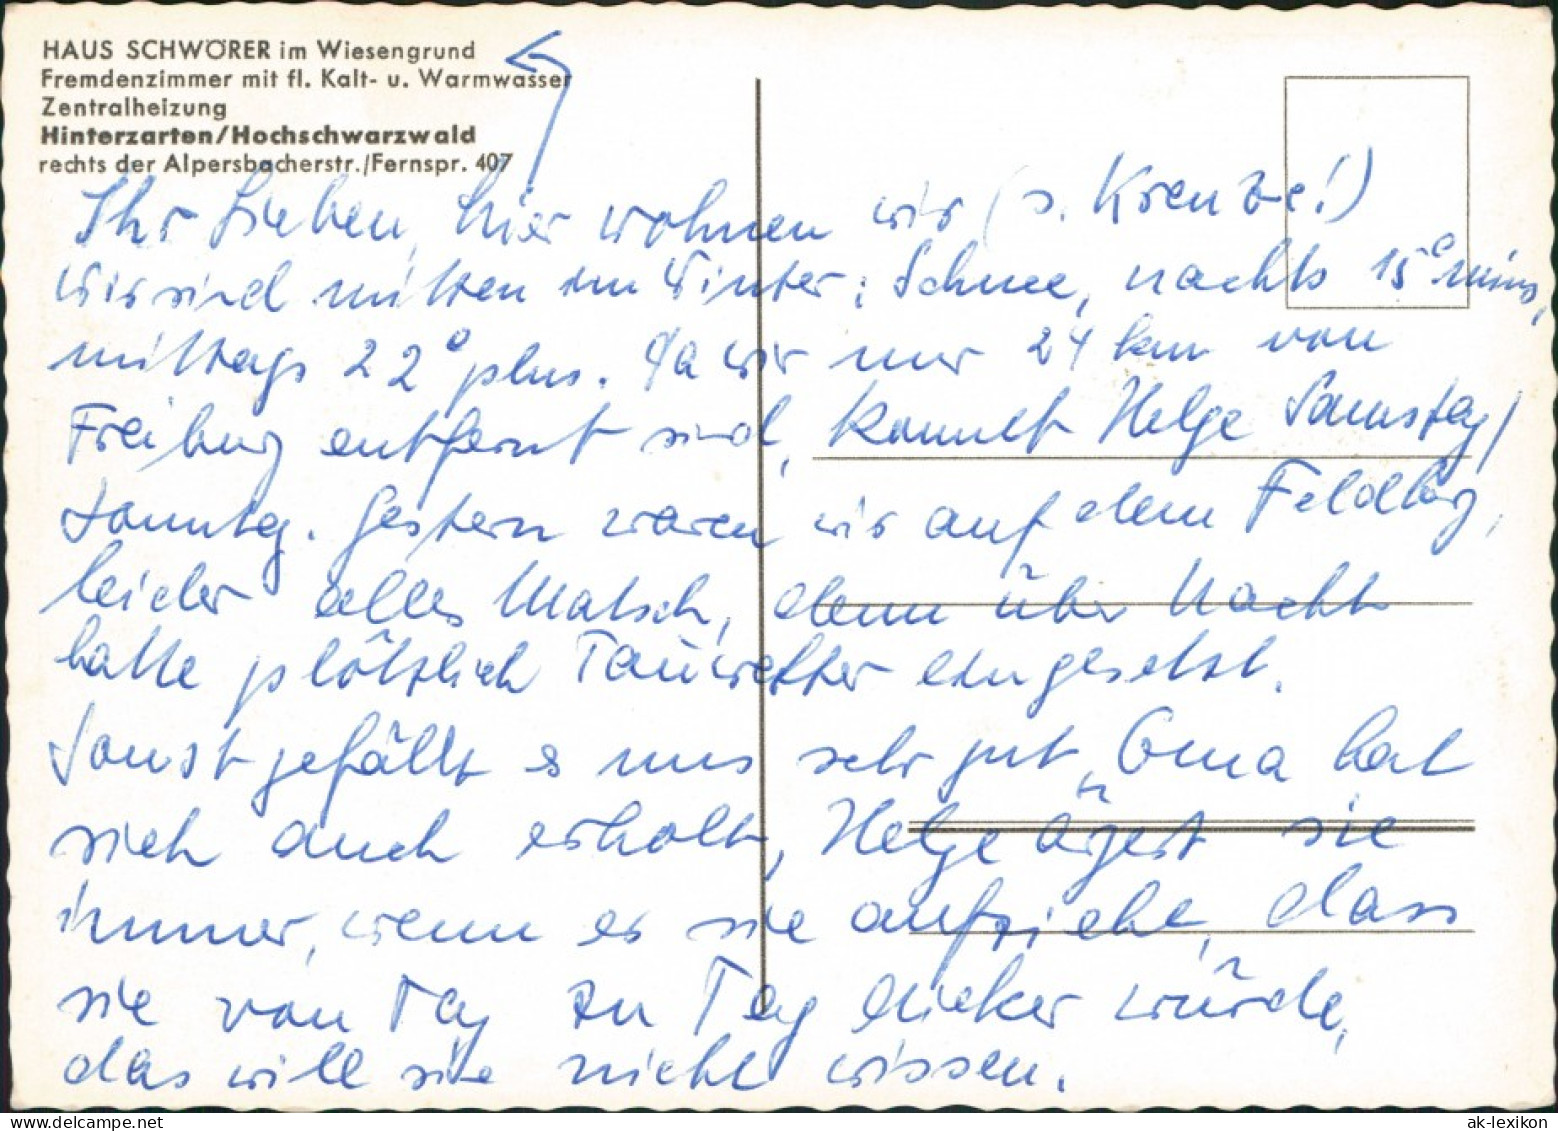 HAUS SCHWÖRER im Wiesengrund
Fremdenzimmer mit fl. Kalt- u. Warmwasser
Zentralheizung
Hinterzarten/Hochschwarzwald
rechts der Alpersbacherstr./Fernspr. 407
Ihr Lieben, hier wohnen wir (s. Kreuze!)
Wir sind mitten im Winter: Schnee, nachts 15° minus,
mittags 22° plus. Da wir nur 24 km von
Freiburg entfernt sind, kommt Helge Samstag/
Sonntag. Gestern waren wir auf dem Feldberg,
leider alles Matsch, denn über Nacht
hatte plötzlich Tauwetter eingesetzt.
Sonst gefällt es uns sehr gut, Oma hat
sich auch erholt, Helge ärgert sie
immer, wenn er sie aufzieht, dass
sie von Tag zu Tag dicker würde,
das will sie nicht wissen.
ak-lexikon.com